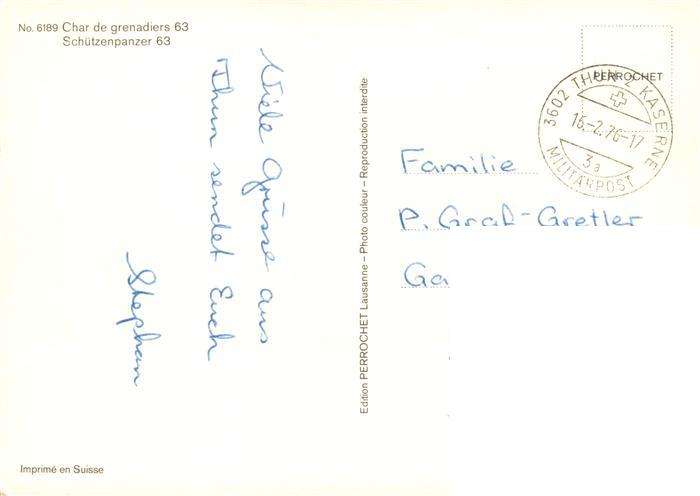 No. 6189 Char de grenadiers 63
Schützenpanzer 63
Viele Grüsse aus
Thun sendet Euch
Stephan
Edition PERROCHET Lausanne – Photo couleur – Reproduction interdite
PERROCHET
3602 THUN 2 KASERNE
16.-2.76-17
3a
MILITÄRPOST
Familie
P. Graf-Gretler
Ga
Imprimé en Suisse